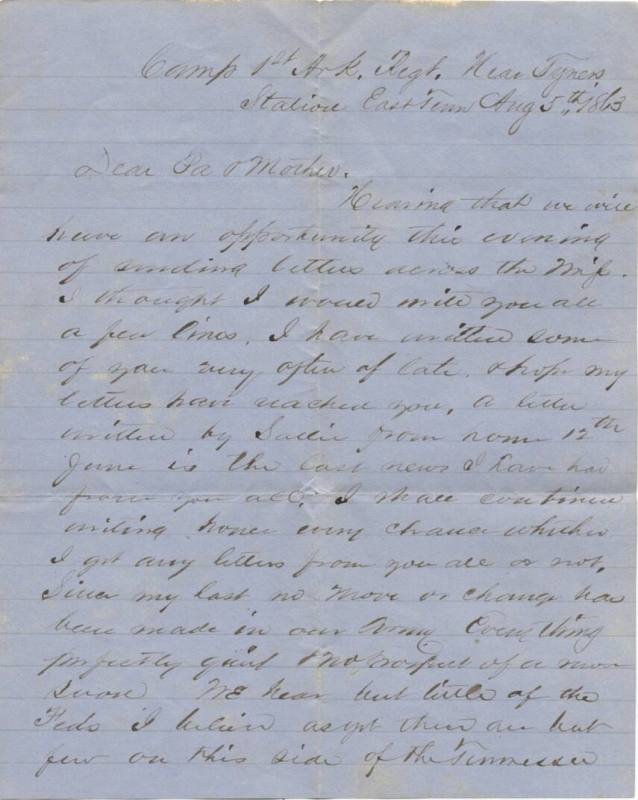 Camp 1st Ark. Regt. Near Tyners
Station East Tenn Aug 5th, 1863
Dear Pa & Mother.
Hearing that we will
have an opportunity this evening
of sending letters across the Miss.
I thought I would write you all
a few lines. I have written some
of you very often of late. & hope my
letters have reached you. A letter
written by Sallie from home 12th
June is the last news I have had
from you all. I shall continue
writing home every chance whether
I get any letters from you all or not.
Since my last no move or change has
been made in our Army Everything
perfectly quiet & no prospect of a move
soon We hear but little of the
Feds I believe as yet there are but
few on this side of the Tennessee